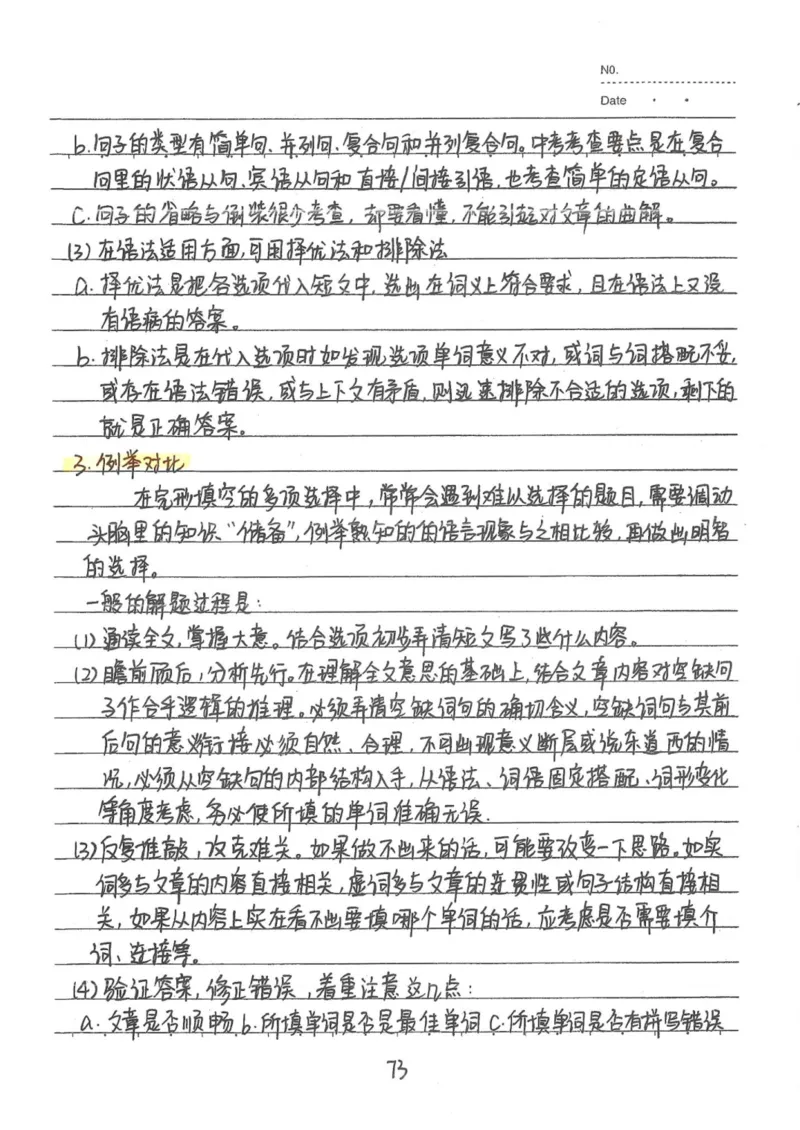 No.
Date
b.句子的类型有简单句、并列句、复合句和并列复合句。中考考查要点是在复合
句里的状语从句、宾语从句和直接/间接引语,也考查简单的定语从句。
C.句子的省略与倒装很少考查,却要看懂,不能引起对文章的曲解。
(3)在语法适用方面,可用择优法和排除法
a.择优法是把各选项代入短文中,选出在词义上符合要求,且在语法上又没
有语病的答案。
b.排除法是在代入选项时如发现选项单词意义不对,或词与词搭配不妥,
或存在语法错误,或与上下文有矛盾,则迅速排除不合适的选项,剩下的
就是正确答案。
3.例举对比
在完形填空的多项选择中,常常会遇到难以选择的题目,需要调动
头脑里的知识“储备”,例举熟知的的语言现象与之相比较,再做出明智
的选择。
一般的解题过程是:
(1)通读全文,掌握大意。结合选项初步弄清短文写了些什么内容。
(2)瞻前顾后,分析先行。在理解全文意思的基础上,结合文章内容对空缺句
子作合乎逻辑的推理。必须弄清空缺词句的确切含义,空缺词句与其前
后句的意义衔接必须自然、合理,不可出现意义断层或说东道西的情
况,必须从空缺句的内部结构入手,从语法、词语固定搭配、词形变化
等角度考虑,务必使所填的单词准确无误.
(3)反复推敲,攻克难关。如果做不出来的话,可能要改变一下思路。如实
词多与文章的内容直接相关,虚词多与文章的连贯性或句子结构直接相
关,如果从内容上实在看不出要填哪个单词的话,应考虑是否需要填介
词、连接等。
(4)验证答案,修正错误,着重注意这几点:
a.文章是否顺畅 b.所填单词是否是最佳单词 C.所填单词是否有拼写错误
73